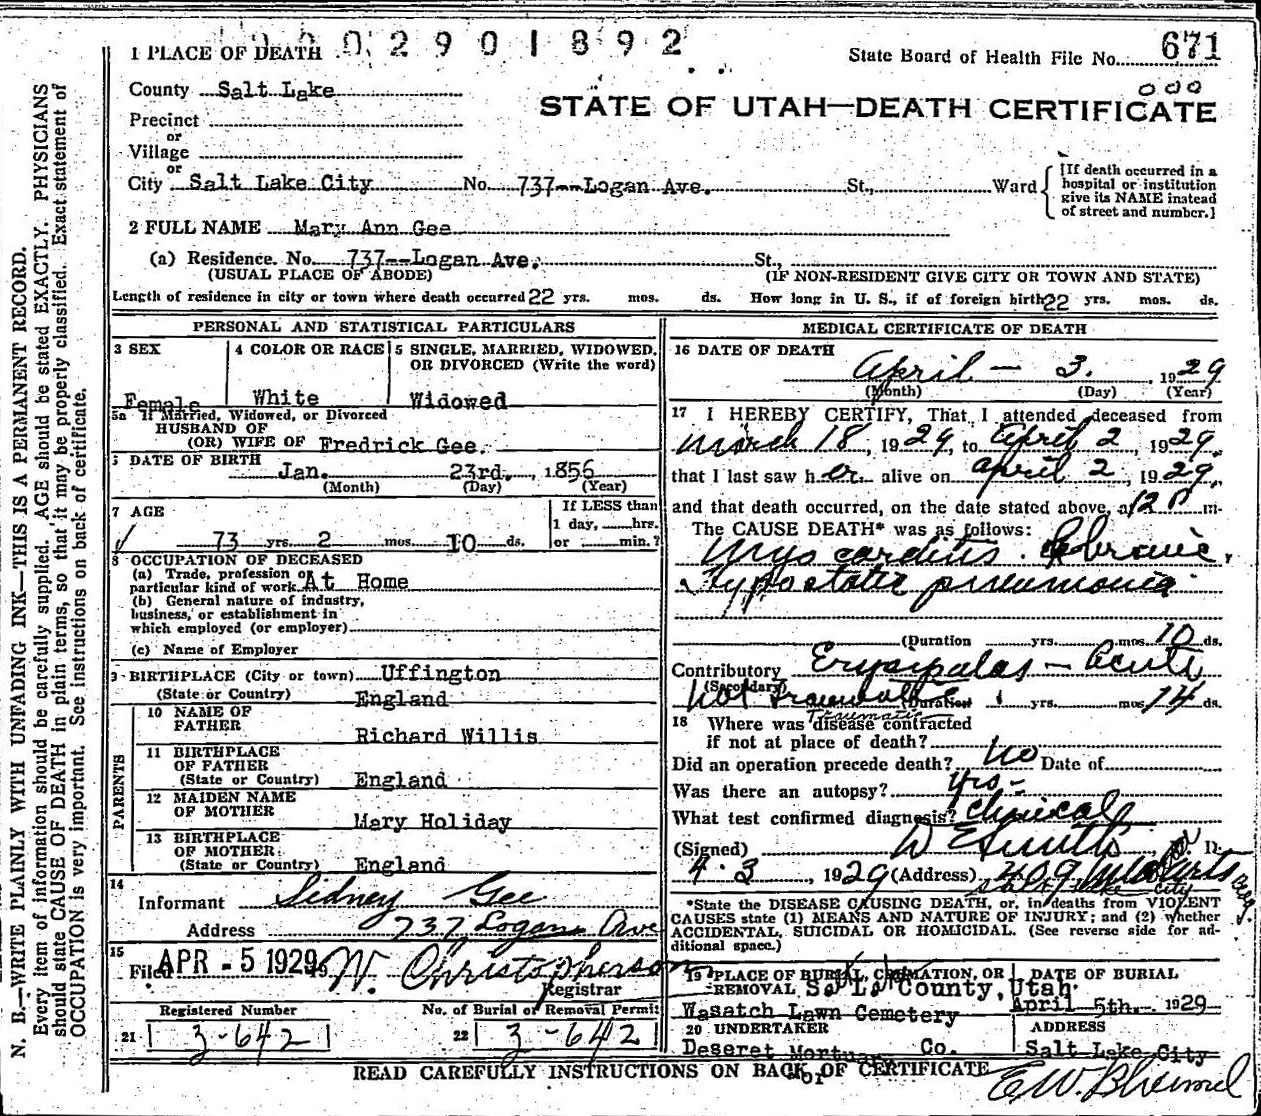 0 0 0 2 9 0 1 8 9 2
1 PLACE OF DEATH
State Board of Health File No. 671
000
County Salt Lake
STATE OF UTAH—DEATH CERTIFICATE
Precinct
or
Village
or
City Salt Lake City No. 737--Logan Ave. St., Ward
[If death occurred in a
hospital or institution
give its NAME instead
of street and number.]
2 FULL NAME Mary Ann Gee
(a) Residence. No. 737--Logan Ave. St.,
(USUAL PLACE OF ABODE) (IF NON-RESIDENT GIVE CITY OR TOWN AND STATE)
Length of residence in city or town where death occurred 22 yrs. mos. ds. How long in U. S., if of foreign birth 22 yrs. mos. ds.
PERSONAL AND STATISTICAL PARTICULARS
3 SEX
Female
4 COLOR OR RACE
White
5 SINGLE, MARRIED, WIDOWED,
OR DIVORCED (Write the word)
Widowed
5a If Married, Widowed, or Divorced
HUSBAND OF
(OR) WIFE OF Fredrick Gee.
DATE OF BIRTH
Jan. 23rd. , 1856
(Month) (Day) (Year)
7 AGE
73 yrs. 2 mos. 10 ds.
If LESS than
1 day, hrs.
or min.?
8 OCCUPATION OF DECEASED
(a) Trade, profession or
particular kind of work At Home
(b) General nature of industry,
business, or establishment in
which employed (or employer)
(c) Name of Employer
9 BIRTHPLACE (City or town) Uffington
(State or Country) England
PARENTS
10 NAME OF
FATHER Richard Willis
11 BIRTHPLACE
OF FATHER
(State or Country) England
12 MAIDEN NAME
OF MOTHER Mary Holiday
13 BIRTHPLACE
OF MOTHER
(State or Country) England
14
Informant Sidney Gee
Address 737 Logan Ave
15
Filed APR - 5 1929 W. Christopherson
Registrar
Registered Number No. of Burial or Removal Permit
21 3-642 22 3-642
MEDICAL CERTIFICATE OF DEATH
16 DATE OF DEATH
April - 3. , 1929
(Month) (Day) (Year)
17 I HEREBY CERTIFY, That I attended deceased from
March 18, 1929, to April 2 1929,
that I last saw her alive on April 2, 1929,
and that death occurred, on the date stated above, at 12 P m.
The CAUSE DEATH* was as follows:
Myocarditis. Chronic,
Hypostatic pneumonia
(Duration yrs. mos. 10 ds.
Contributory Erysipalas - Acute
(Secondary) Not Traumatic (Duration yrs. mos. 14 ds.
Traumatic
18 Where was disease contracted
if not at place of death?
Did an operation precede death? No Date of
Was there an autopsy? Yes -
What test confirmed diagnosis? Clinical
(Signed) D E Smith M D.
4-3, 1929 (Address) 409 Arts Bldg.
Salt Lake City
*State the DISEASE CAUSING DEATH, or, in deaths from VIOLENT
CAUSES state (1) MEANS AND NATURE OF INJURY; and (2) whether
ACCIDENTAL, SUICIDAL OR HOMICIDAL. (See reverse side for ad-
ditional space.)
19 PLACE OF BURIAL, CREMATION, OR
REMOVAL S. L. County, Utah.
Wasatch Lawn Cemetery
DATE OF BURIAL
April 5th. 1929
20 UNDERTAKER
Deseret Mortuary Co.
ADDRESS
Salt Lake City
READ CAREFULLY INSTRUCTIONS ON BACK OF CERTIFICATE
N. B.—WRITE PLAINLY WITH UNFADING INK—THIS IS A PERMANENT RECORD.
Every item of information should be carefully supplied. AGE should be stated EXACTLY. PHYSICIANS
should state CAUSE OF DEATH in plain terms, so that it may be properly classified. Exact statement of
OCCUPATION is very important. See instructions on back of certificate.